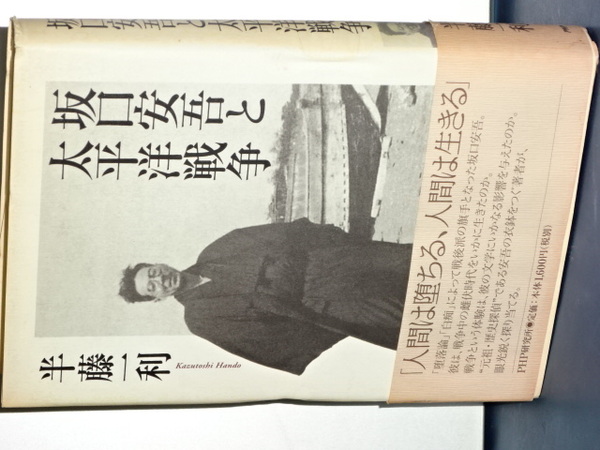 坂口安吾と太平洋戦争
半藤一利
坂口安吾と
太平洋戦争
半藤一利
Kazutoshi Hando
「人間は堕ちる、人間は生きる」
「堕落論」「白痴」によって戦後派の旗手となった坂口安吾。
彼は、戦争中の雌伏時代をいかに生きたのか。
戦争という体験は、彼の文学にいかなる影響を与えたのか。
“元祖・歴史探偵”である安吾の衣鉢をつぐ著者が、
眼光鋭く探り当てる。
PHP研究所●定価:本体1,600円(税別)